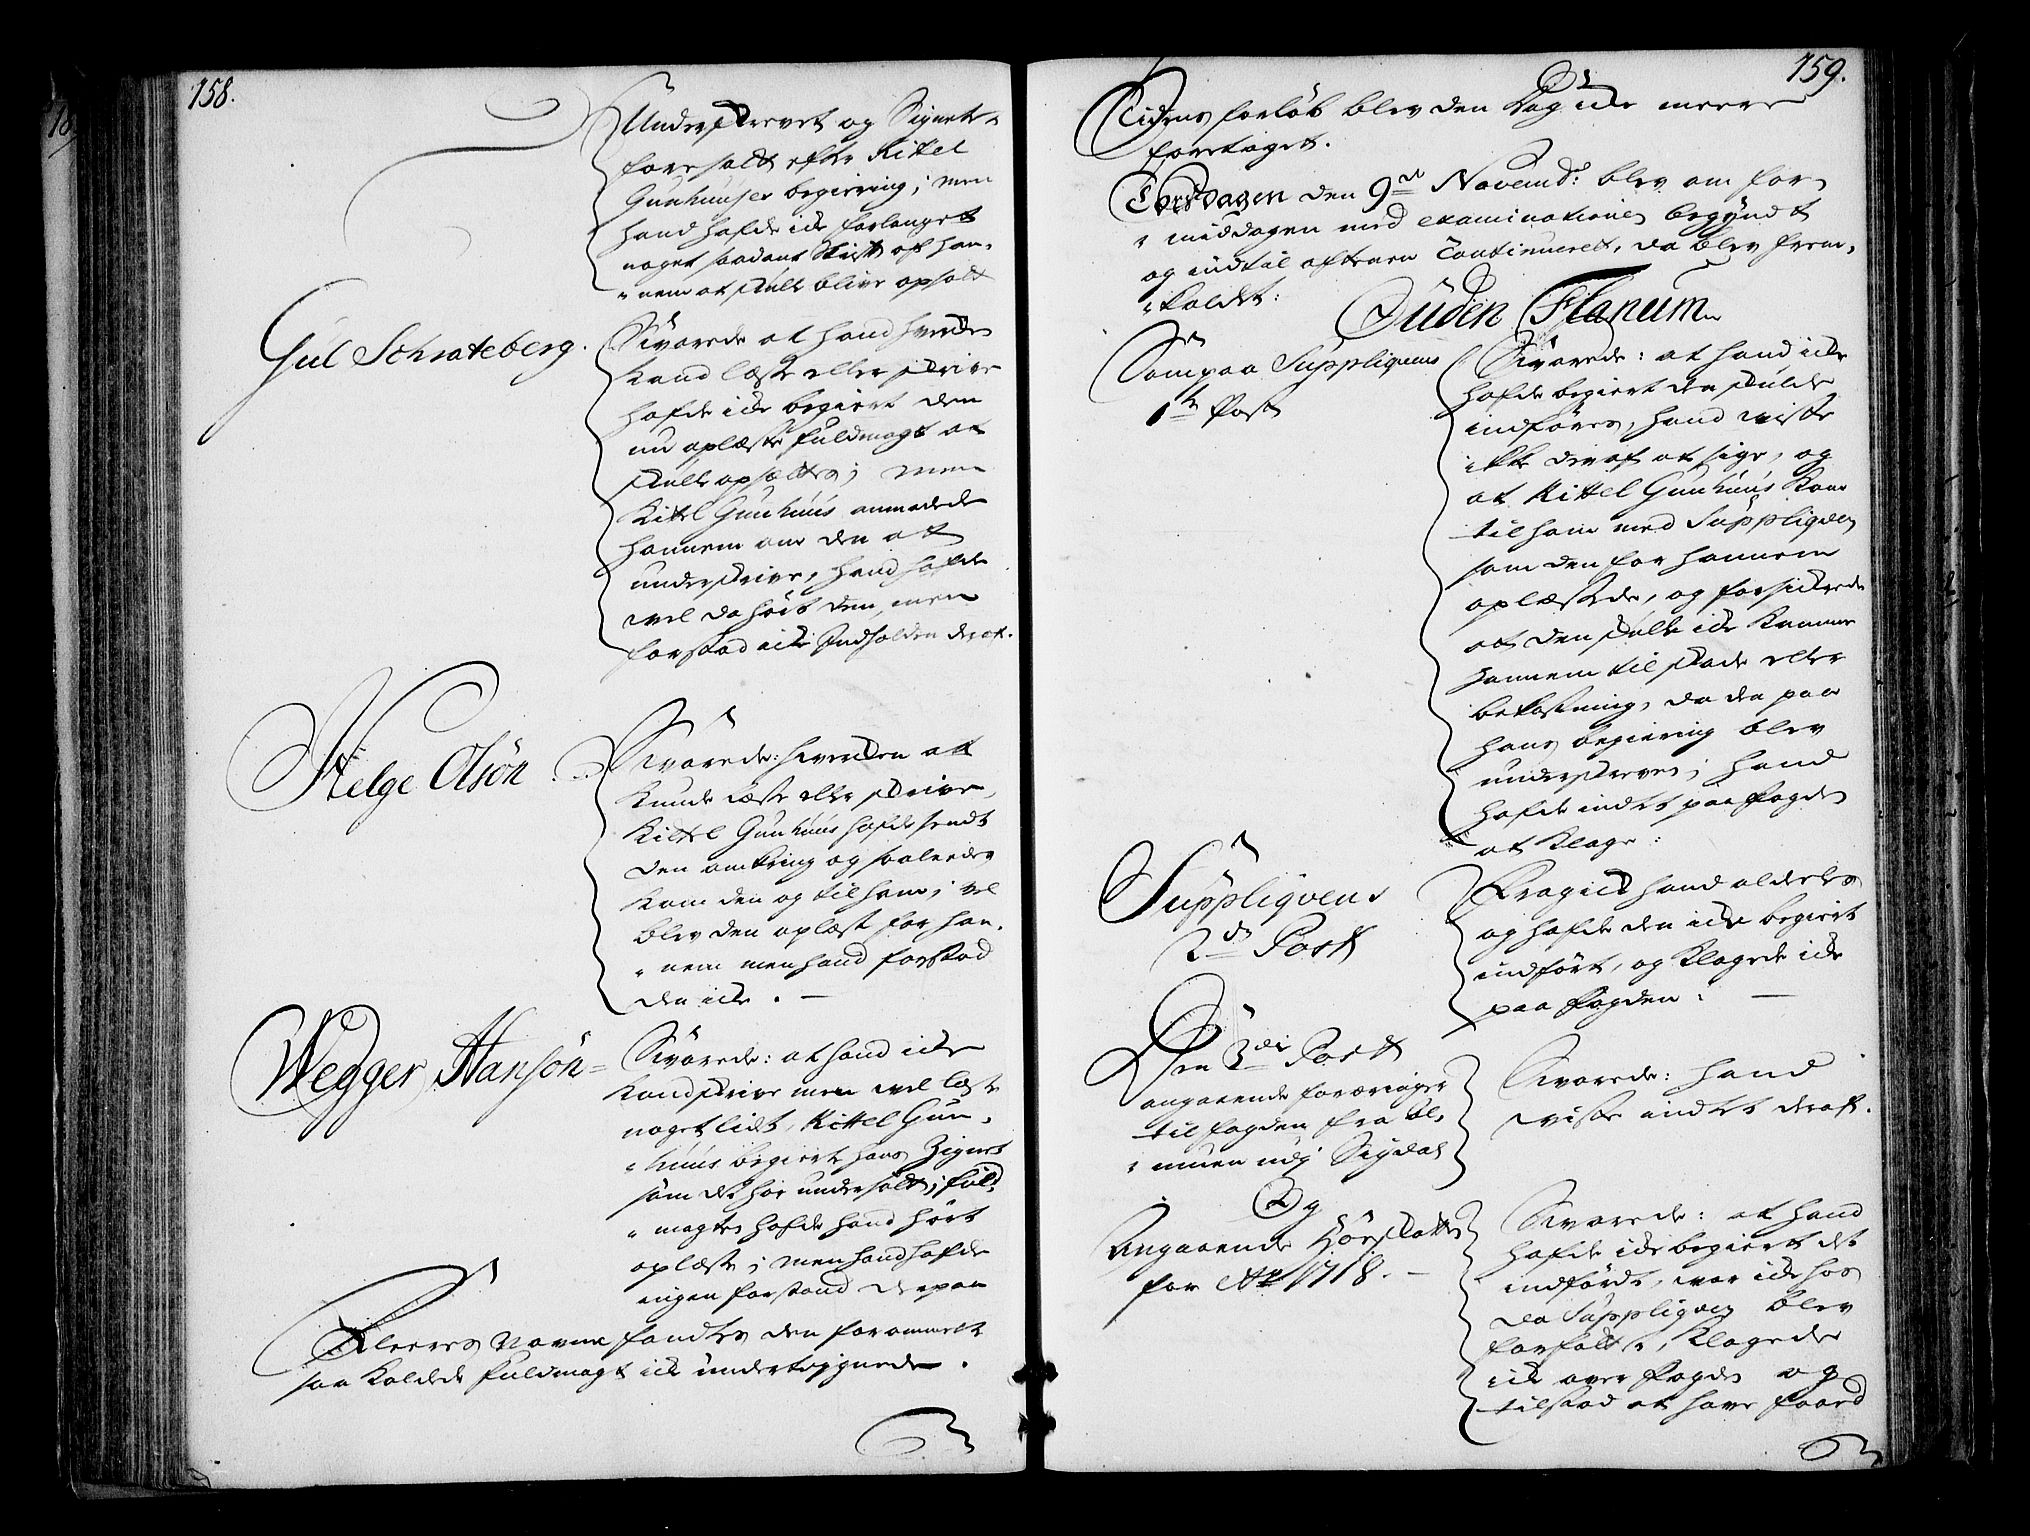 158.
Underskrevet og Signete
foresatt efter Kittel
Gunhuuses begiering; men
hand hafde icke forlanget
noget saadant Skrift af han-
"nem at skulle blive opsatt
Gul Schrateberg.
Svarede at hand hvercken
kand læsse eller skrive
hafde icke begiert den
nu oplæste fuldmagt at
skulle opsættes; men
Kittel Gunhuus anmodede
hannem om den at
underskrive, hand hafde
vel da hørt den, men
forstod icke Indholden deraf.
Helge Olsön
Svarede: hvercken at
kunde læsse eller skrive,
Kittel Gunhuus hafde sendt
den omkring og saaledes
kom den og til ham; vel
blev den oplæst for han-
"nem men hand forstod
den icke. —
Wegger Hansön
Svarede: at hand icke
kand skrive men vel læse
noget lidt, Kittel Gun-
"huus begierte hans Zignet
som det her undersatt; fuld-
"magten hafde hand hört
oplæsse; men hand hafde
ingen forstand derpaa
Fleeres Navne fandtes den foromelte
saa kaldede fuldmagt icke undertegnede.
159.
Tidens forløb blev den Dag icke meere
foretaget.
Torsdagen den 9de Novemb: blev om for-
"middagen med examinationen begyndt
og indtil aftenen Continueret, da blev frem-
"kaldet:
Guden Flanum
Som paa Suppliquens
1te Post
Svarede: at hand icke
hafde begiert den skulde
indføres, hand viste
ikke deraf at sige, og
at Kittel Gunhuus kom
til ham med Suppliqven
som den for hannem
oplæste, og forsickrede
at den skulle icke komme
hannem til skade eller
bekostning, da den paa
hans begiering blev
underskreven; hand
hafde indtet paa fogden
at klage:
Suppliqvens
2den Post
Fragick hand aldeeles
og hafde den icke begiert
indfört, og klagede icke
paa fogden: —
Den 3die Post
angaaende foræringer
til fogden fra Al-
"muen udj Sigdal
Svarede: hand
viste indtet deraf.
Og
Angaaende Hörskatten
for Ao 1718. —
Svarede: at hand
hafde icke begiert det
indfördt, var icke hos
da Suppliqven blev
forfattet, klagede
icke over fogden og
tilstod at have faaed